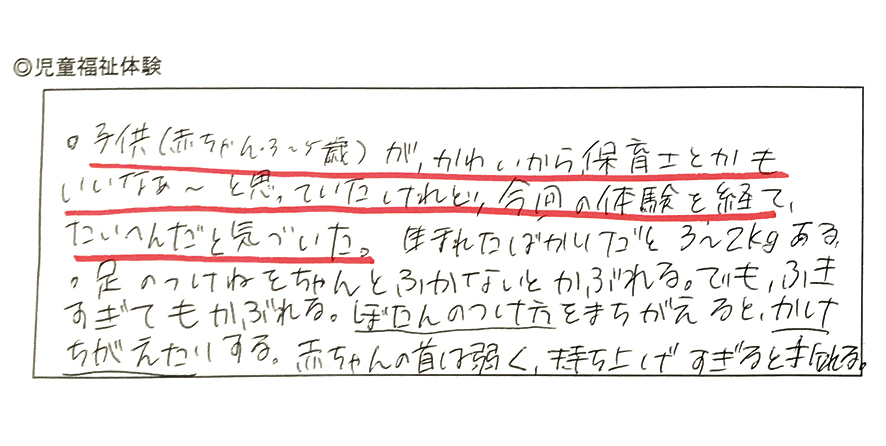 ◎児童福祉体験
。子供(赤ちゃん・3~5歳)が、かわいから保育士とかも
いいなぁ~と思っていたけれど、今回の体験を経て、
たいへんだと気づいた。生まれたばかりだと3~2kgある。
。足のつけねをちゃんとふかないとかぶれる。でも、ふき
すぎてもかぶれる。ぼたんのつけ方をまちがえると、かけ
ちがえたりする。赤ちゃんの首は弱く、持ち上げすぎると折れる。